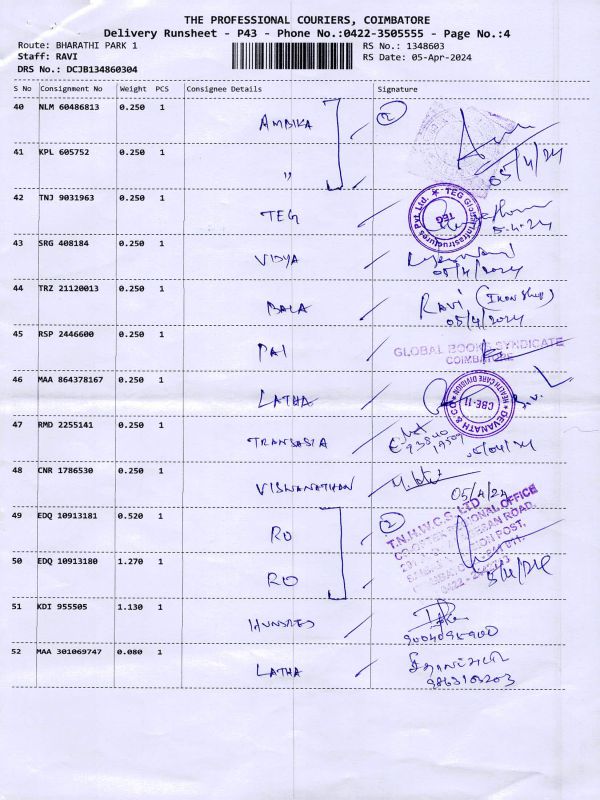 THE PROFESSIONAL COURIERS, COIMBATORE
Delivery Runsheet - P43 - Phone No.:0422-3505555 - Page No.:4
Route: BHARATHI PARK 1 RS No.: 1348603
Staff: RAVI RS Date: 05-Apr-2024
DRS No.: DCJB134860304
S No Consignment No Weight PCS Consignee Details Signature
40 NLM 60486813 0.250 1 AMBIKA 2
41 KPL 605752 0.250 1 " 05/4/24
42 TNJ 9031963 0.250 1 TEG 5.4.24
TEG Global Infrastructures Pvt. Ltd. ★ TEG
43 SRG 408184 0.250 1 VIDYA 05/4/2024
44 TRZ 21120013 0.250 1 BALA RAVI (Iron Shop)
05/4/2024
45 RSP 2446600 0.250 1 PAI GLOBAL BOOKS SYNDICATE
COIMBATORE
46 MAA 864378167 0.250 1 LATHA
DEVANATH & CO HEALTH CARE DIVISION CBE-11
47 RMD 2255141 0.250 1 TRANSASIA
05/04/24
48 CNR 1786530 0.250 1 VISWANATHAN
05/4/24
49 EDQ 10913181 0.520 1 RO 2
T.N.H.W.C.S. LTD
REGIONAL OFFICE
ROAD,
POST,
50 EDQ 10913180 1.270 1 RO
0422 -
51 KDI 955505 1.130 1 HUNDRED
52 MAA 301069747 0.080 1 LATHA